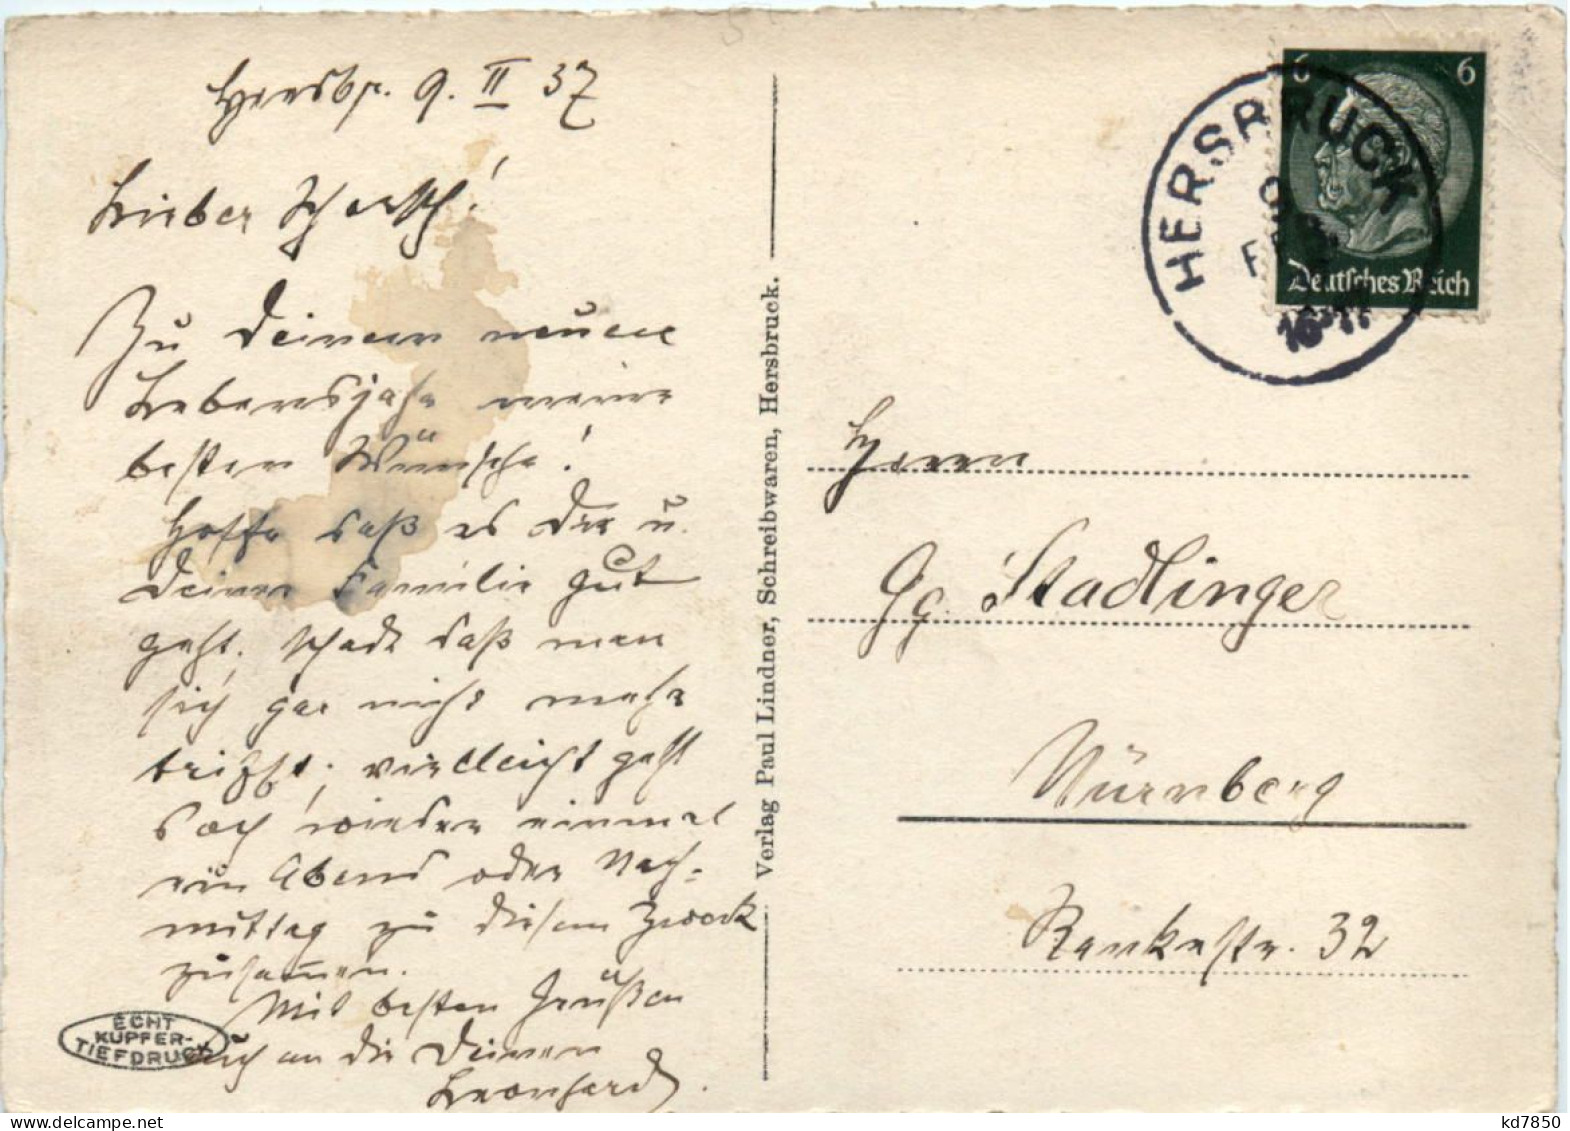 Hersbr. 9. II 37
Lieber Schorsch!
Zu Deinem neuen
Lebensjahr meine
besten Wünsche!
Hoffe daß es Dir u.
Deiner Familie gut
geht. Schade daß man
sich gar nicht mehr
trifft, vielleicht geht
doch wieder einmal
ein Abend oder Nach-
mittag zu diesem Zweck
zusammen.
Mit besten Grüßen
auch an die Deinen
Leonhard.
ECHT
KUPFER-
TIEFDRUCK
Verlag Paul Lindner, Schreibwaren, Hersbruck.
6 6
Deutsches Reich
HERSBRUCK
FEB
16-17
Herrn
Gg. Stadlinger
Nürnberg
Rankestr. 32
kd7850